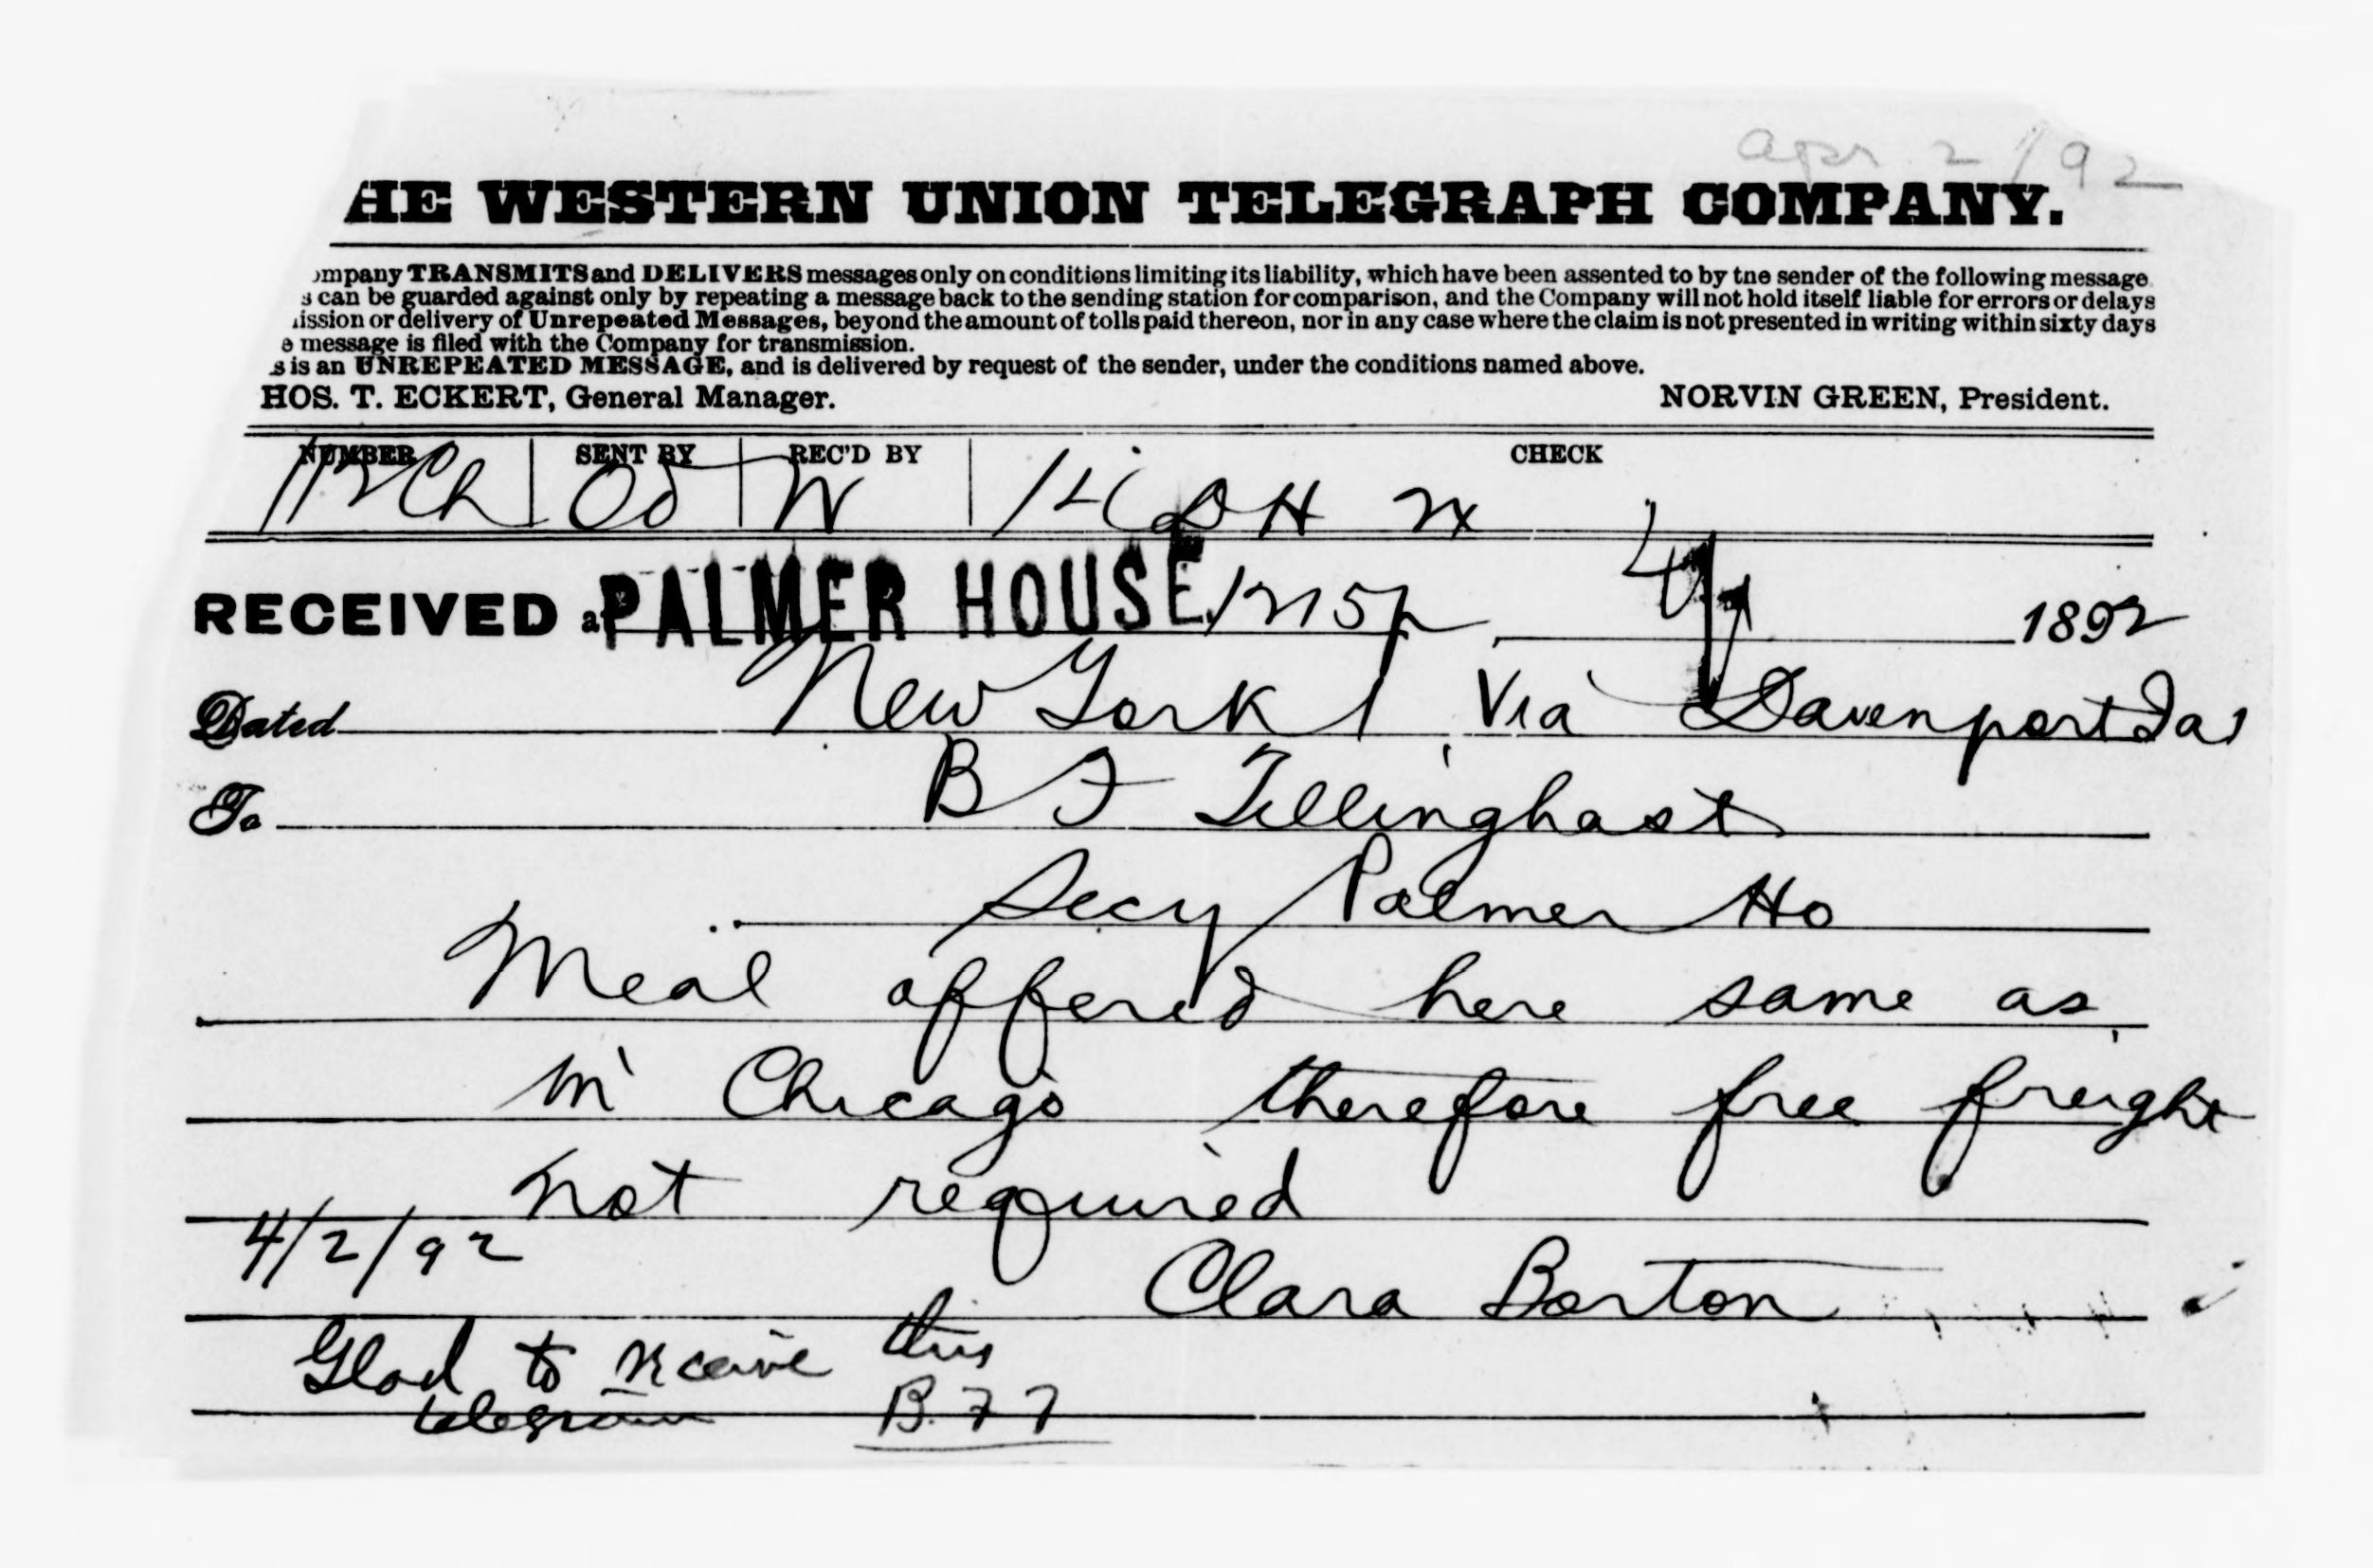 apr 2/92
HE WESTERN UNION TELEGRAPH COMPANY.
ompany TRANSMITS and DELIVERS messages only on conditions limiting its liability, which have been assented to by the sender of the following message
s can be guarded against only by repeating a message back to the sending station for comparison, and the Company will not hold itself liable for errors or delays
ission or delivery of Unrepeated Messages, beyond the amount of tolls paid thereon, nor in any case where the claim is not presented in writing within sixty days
e message is filed with the Company for transmission.
s is an UNREPEATED MESSAGE, and is delivered by request of the sender, under the conditions named above.
HOS. T. ECKERT, General Manager. NORVIN GREEN, President.
NUMBER SENT BY REC'D BY CHECK
Od W DH
RECEIVED at PALMER HOUSE. 1215p 1892
Dated New York 1 Via Davenport Ia 1
To B F Tillinghast
Secy Palmer Ho
Meal offered here same as
in Chicago therefore free freight
not required
4/2/92
Clara Barton
Glad to receive this
telegram B.F.T.